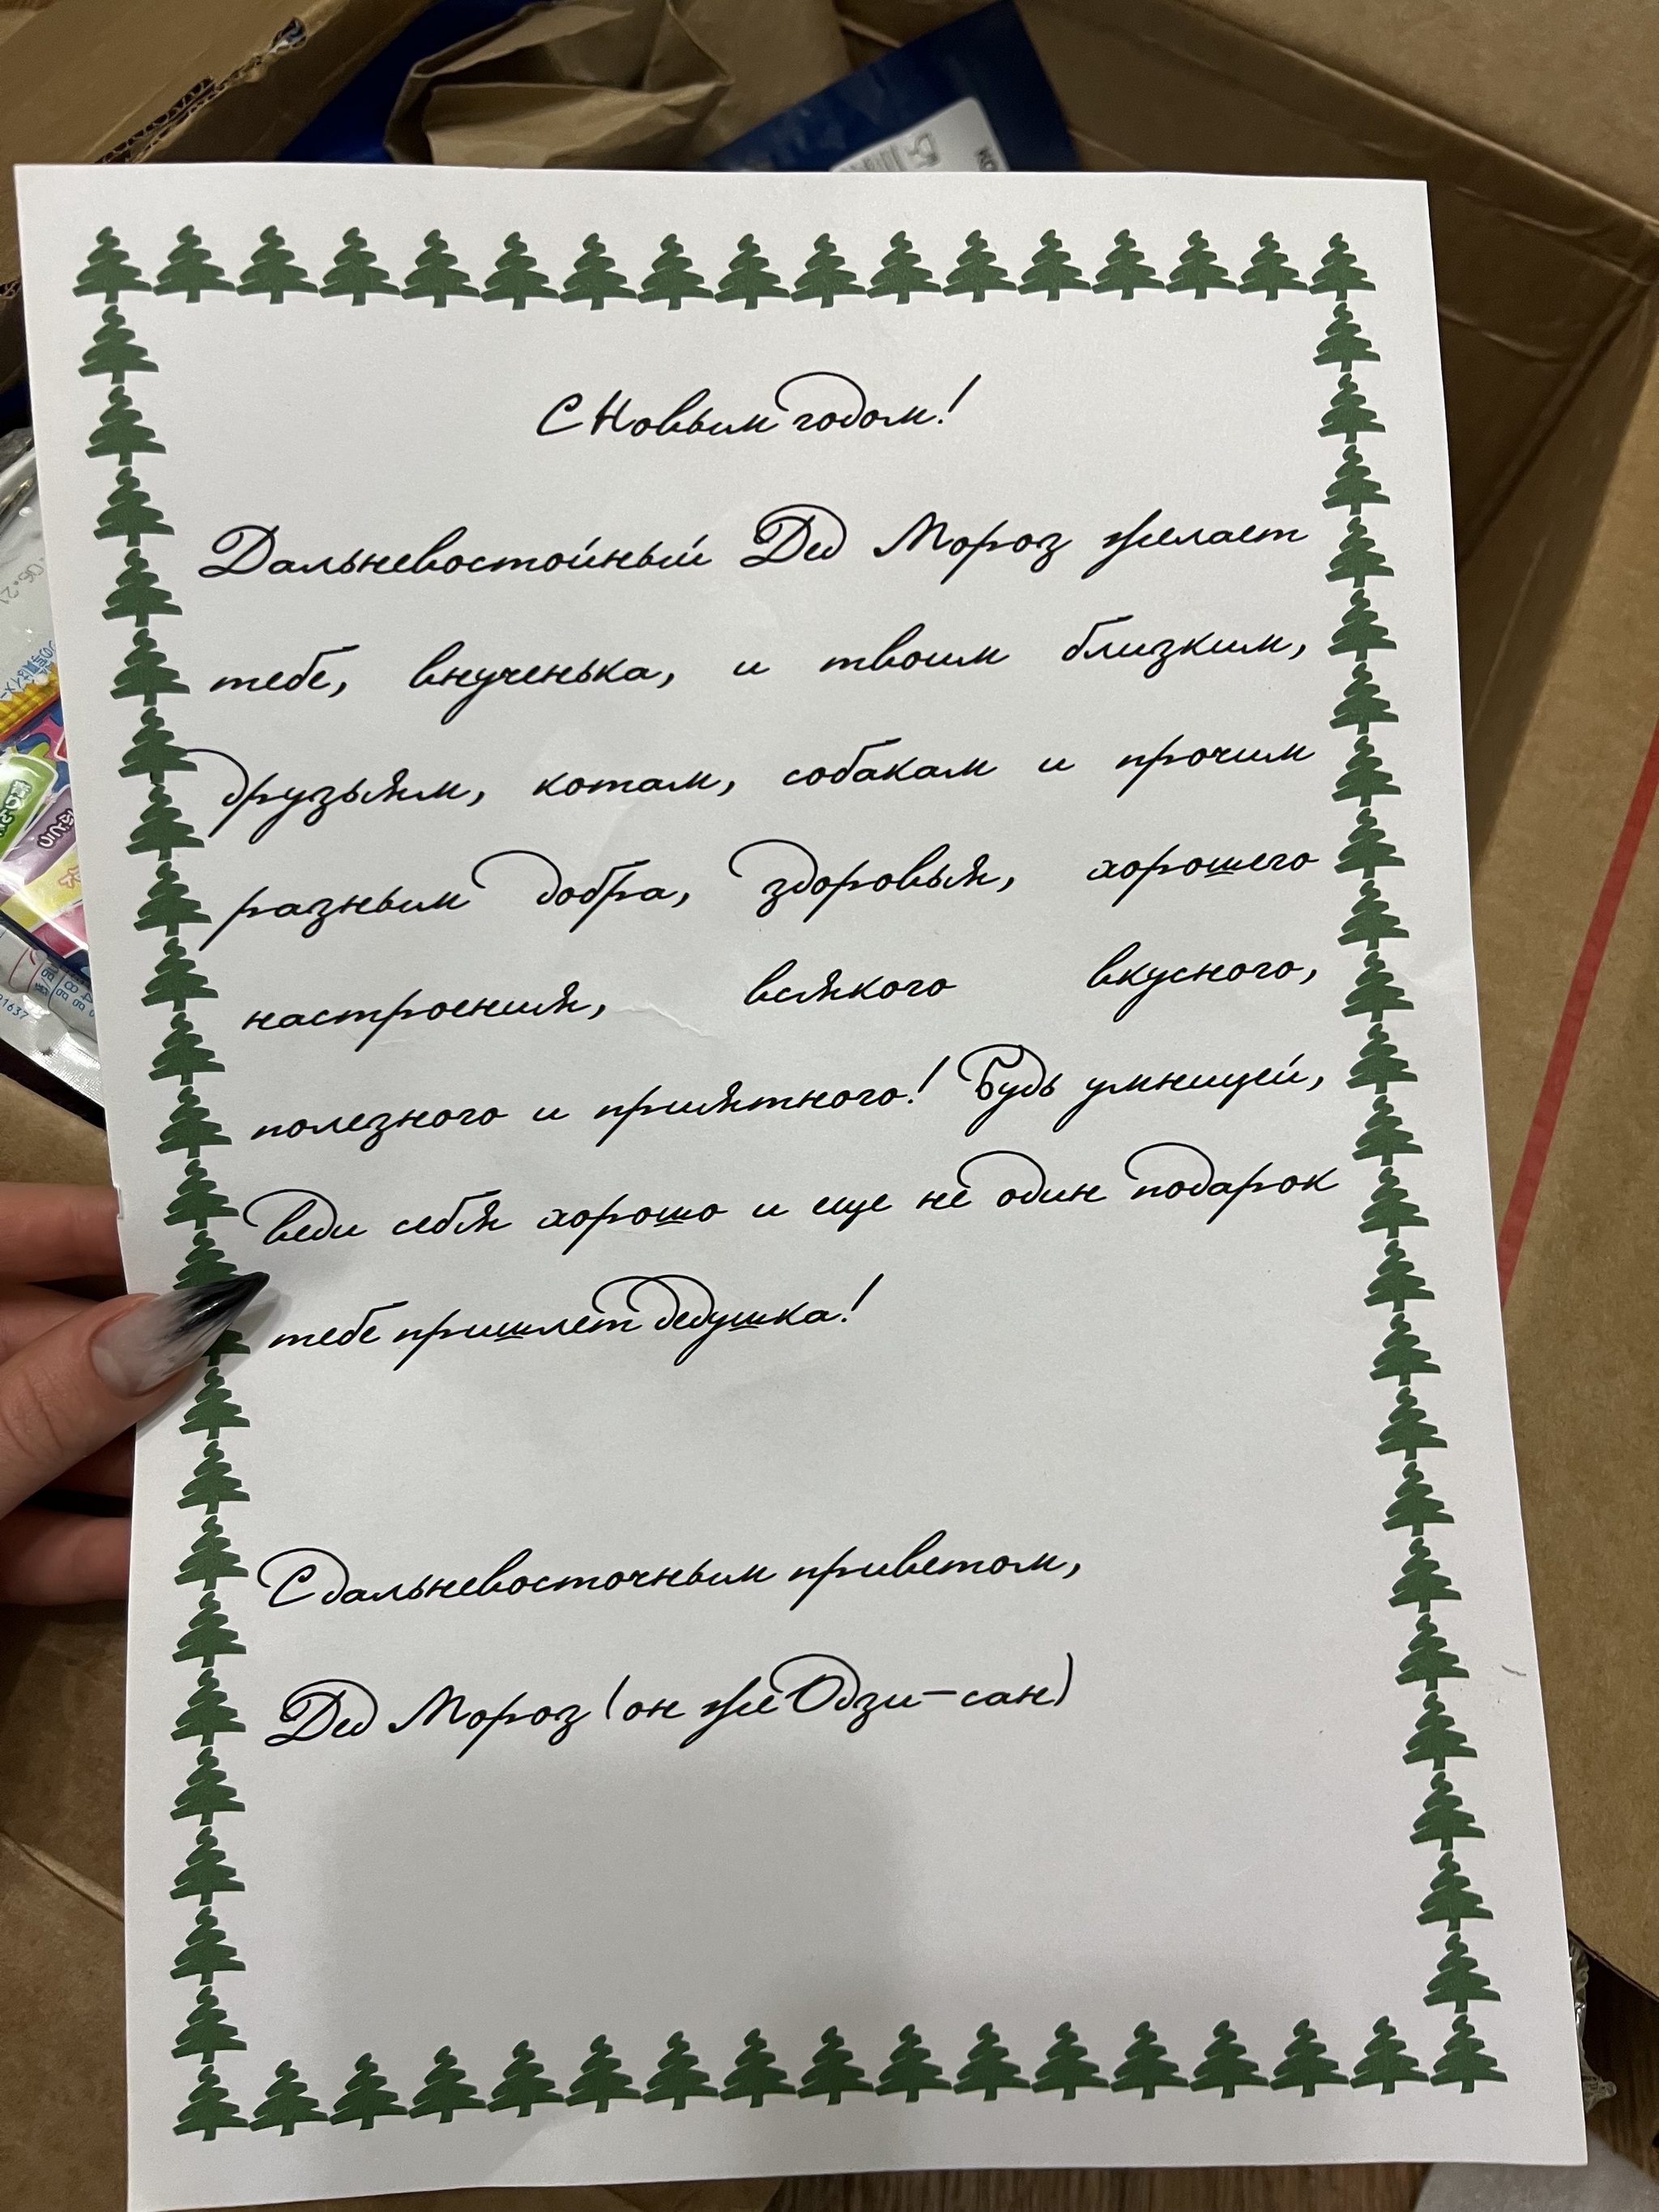 С Новым годом!
Дальневостойный Дед Мороз желает
тебе, внученька, и твоим близким,
друзьям, котам, собакам и прочим
разным добра, здоровья, хорошего
настроения, всякого вкусного,
полезного и приятного! Будь умницей,
веди себя хорошо и еще не один подарок
тебе пришлет дедушка!
С дальневосточным приветом,
Дед Мороз (он же Одзи-сан)